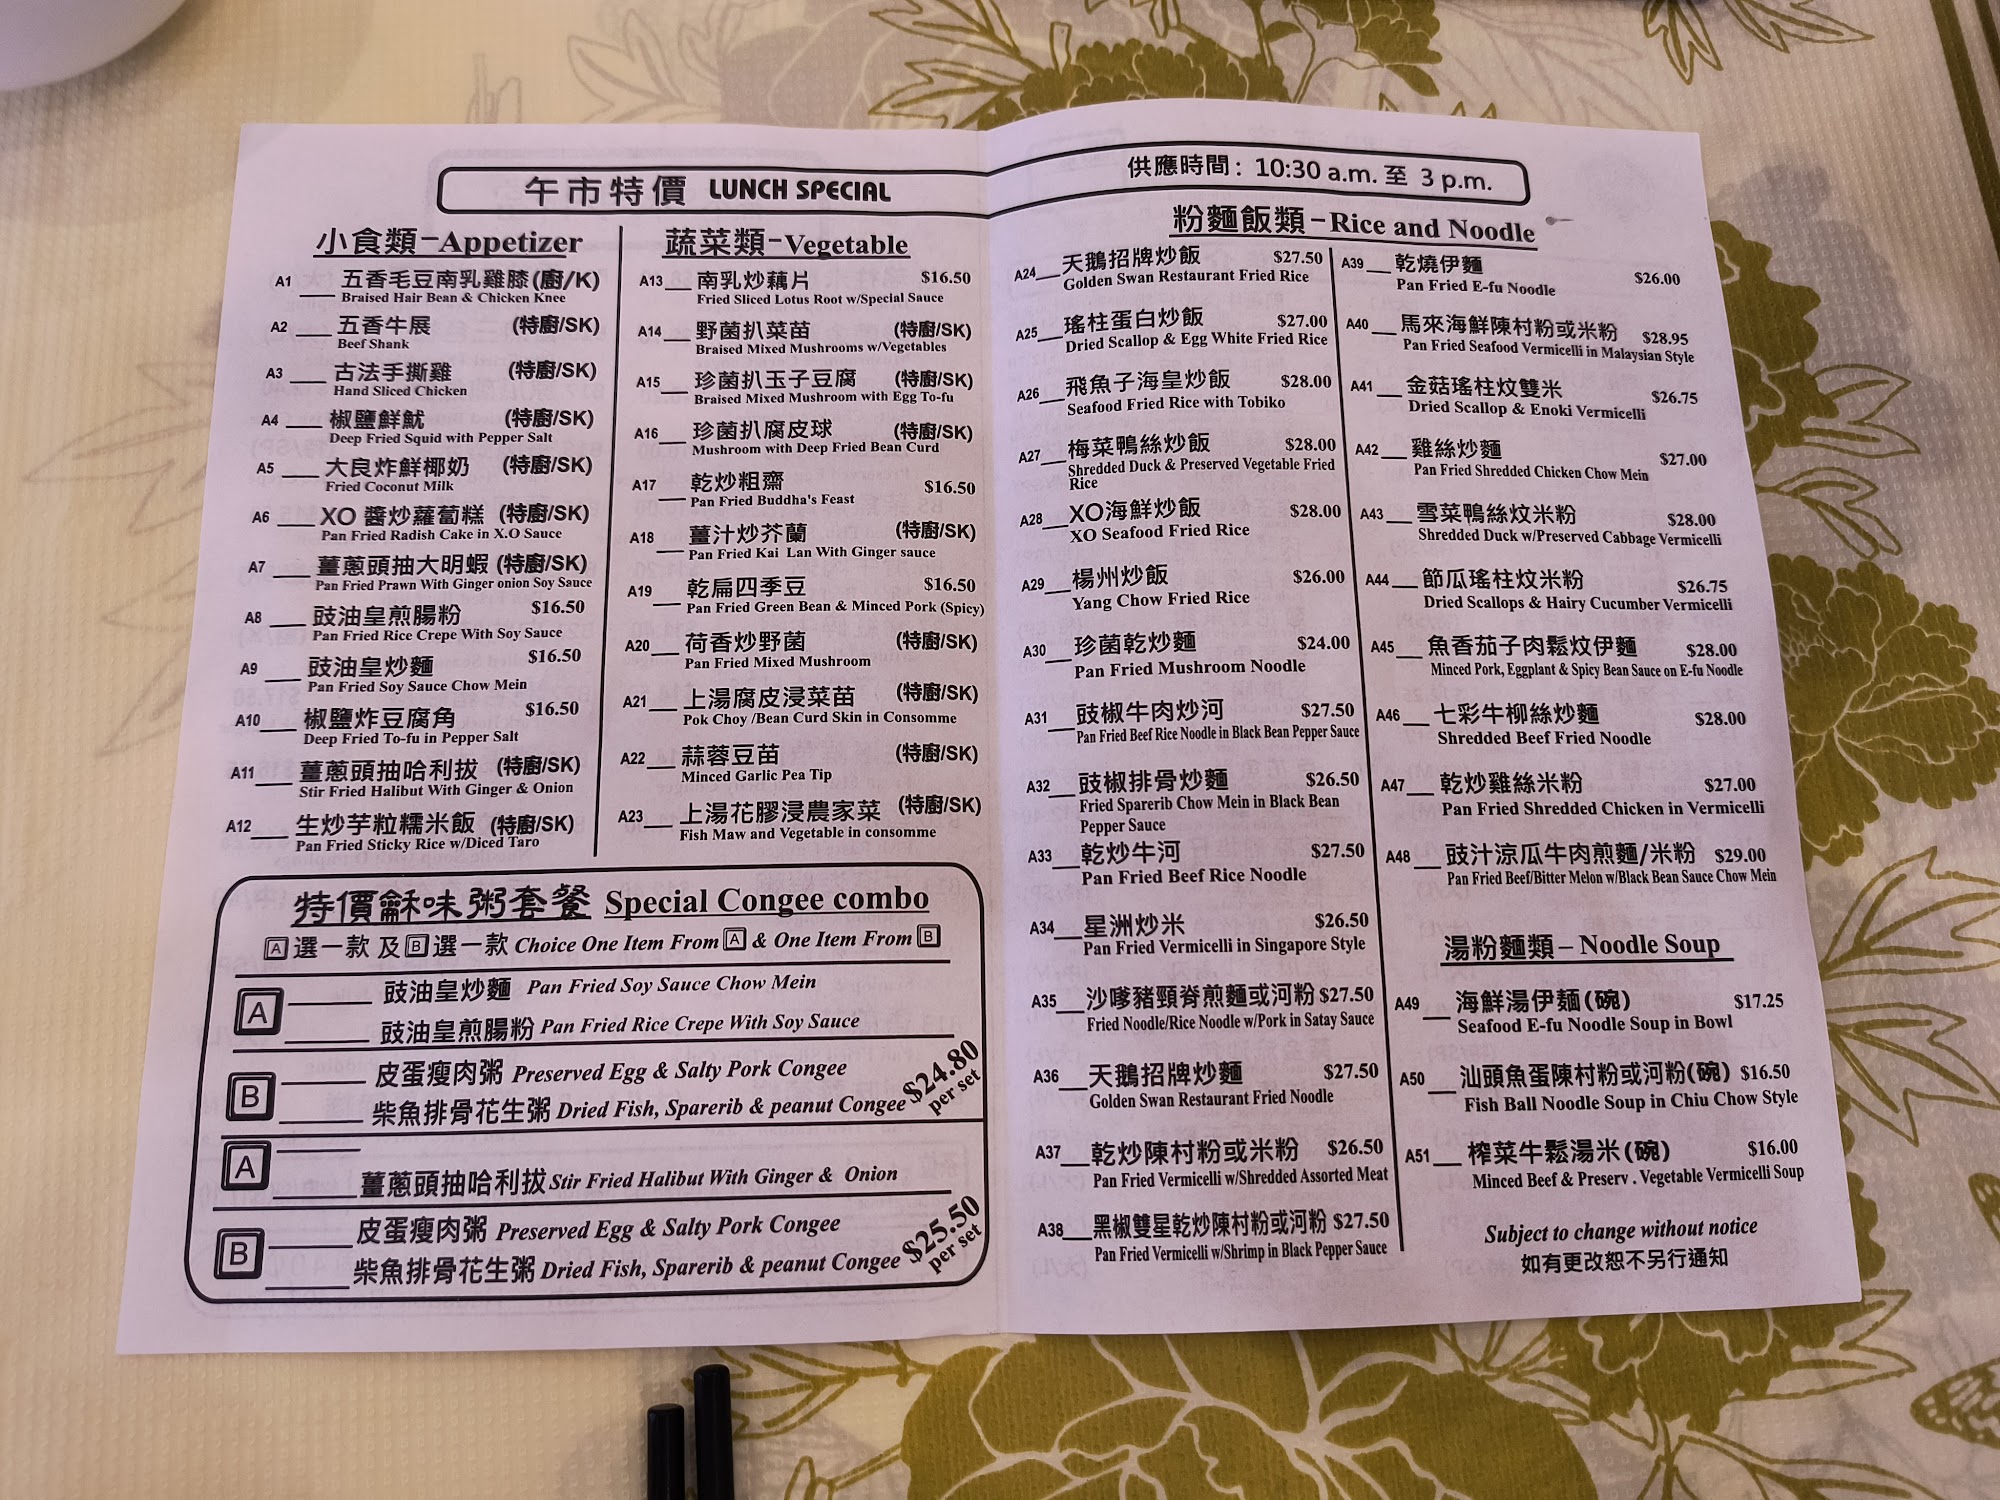 午市特價 LUNCH SPECIAL
供應時間: 10:30 a.m. 至 3 p.m.
小食類-Appetizer
A1 五香毛豆南乳雞膝(廚/K)
Braised Hair Bean & Chicken Knee
A2 五香牛展 (特廚/SK)
Beef Shank
A3 古法手撕雞 (特廚/SK)
Hand Sliced Chicken
A4 椒鹽鮮魷 (特廚/SK)
Deep Fried Squid with Pepper Salt
A5 大良炸鮮椰奶 (特廚/SK)
Fried Coconut Milk
A6 XO 醬炒蘿蔔糕 (特廚/SK)
Pan Fried Radish Cake in X.O Sauce
A7 薑蔥頭抽大明蝦 (特廚/SK)
Pan Fried Prawn With Ginger onion Soy Sauce
A8 豉油皇煎腸粉 $16.50
Pan Fried Rice Crepe With Soy Sauce
A9 豉油皇炒麵 $16.50
Pan Fried Soy Sauce Chow Mein
A10 椒鹽炸豆腐角 $16.50
Deep Fried To-fu in Pepper Salt
A11 薑蔥頭抽哈利拔 (特廚/SK)
Stir Fried Halibut With Ginger & Onion
A12 生炒芋粒糯米飯 (特廚/SK)
Pan Fried Sticky Rice w/Diced Taro
蔬菜類-Vegetable
A13 南乳炒藕片 $16.50
Fried Sliced Lotus Root w/Special Sauce
A14 野菌扒菜苗 (特廚/SK)
Braised Mixed Mushrooms w/Vegetables
A15 珍菌扒玉子豆腐 (特廚/SK)
Braised Mixed Mushroom with Egg To-fu
A16 珍菌扒腐皮球 (特廚/SK)
Mushroom with Deep Fried Bean Curd
A17 乾炒粗齋 $16.50
Pan Fried Buddha's Feast
A18 薑汁炒芥蘭 (特廚/SK)
Pan Fried Kai Lan With Ginger sauce
A19 乾扁四季豆 $16.50
Pan Fried Green Bean & Minced Pork (Spicy)
A20 荷香炒野菌 (特廚/SK)
Pan Fried Mixed Mushroom
A21 上湯腐皮浸菜苗 (特廚/SK)
Pok Choy /Bean Curd Skin in Consomme
A22 蒜蓉豆苗 (特廚/SK)
Minced Garlic Pea Tip
A23 上湯花膠浸農家菜 (特廚/SK)
Fish Maw and Vegetable in consomme
特價龢味粥套餐 Special Congee combo
A 選一款 及 B 選一款 Choice One Item From A & One Item From B
A 豉油皇炒麵 Pan Fried Soy Sauce Chow Mein
豉油皇煎腸粉 Pan Fried Rice Crepe With Soy Sauce
B 皮蛋瘦肉粥 Preserved Egg & Salty Pork Congee
柴魚排骨花生粥 Dried Fish, Sparerib & peanut Congee
$24.80
per set
A
薑蔥頭抽哈利拔 Stir Fried Halibut With Ginger & Onion
B 皮蛋瘦肉粥 Preserved Egg & Salty Pork Congee
柴魚排骨花生粥 Dried Fish, Sparerib & peanut Congee
$25.50
per set
粉麵飯類-Rice and Noodle
A24 天鵝招牌炒飯 $27.50
Golden Swan Restaurant Fried Rice
A25 瑤柱蛋白炒飯 $27.00
Dried Scallop & Egg White Fried Rice
A26 飛魚子海皇炒飯 $28.00
Seafood Fried Rice with Tobiko
A27 梅菜鴨絲炒飯 $28.00
Shredded Duck & Preserved Vegetable Fried
Rice
A28 XO海鮮炒飯 $28.00
XO Seafood Fried Rice
A29 楊州炒飯 $26.00
Yang Chow Fried Rice
A30 珍菌乾炒麵 $24.00
Pan Fried Mushroom Noodle
A31 豉椒牛肉炒河 $27.50
Pan Fried Beef Rice Noodle in Black Bean Pepper Sauce
A32 豉椒排骨炒麵 $26.50
Fried Sparerib Chow Mein in Black Bean
Pepper Sauce
A33 乾炒牛河 $27.50
Pan Fried Beef Rice Noodle
A34 星洲炒米 $26.50
Pan Fried Vermicelli in Singapore Style
A35 沙嗲豬頸脊煎麵或河粉 $27.50
Fried Noodle/Rice Noodle w/Pork in Satay Sauce
A36 天鵝招牌炒麵 $27.50
Golden Swan Restaurant Fried Noodle
A37 乾炒陳村粉或米粉 $26.50
Pan Fried Vermicelli w/Shredded Assorted Meat
A38 黑椒雙星乾炒陳村粉或河粉 $27.50
Pan Fried Vermicelli w/Shrimp in Black Pepper Sauce
A39 乾燒伊麵 $26.00
Pan Fried E-fu Noodle
A40 馬來海鮮陳村粉或米粉 $28.95
Pan Fried Seafood Vermicelli in Malaysian Style
A41 金菇瑤柱炆雙米 $26.75
Dried Scallop & Enoki Vermicelli
A42 雞絲炒麵 $27.00
Pan Fried Shredded Chicken Chow Mein
A43 雪菜鴨絲炆米粉 $28.00
Shredded Duck w/Preserved Cabbage Vermicelli
A44 節瓜瑤柱炆米粉 $26.75
Dried Scallops & Hairy Cucumber Vermicelli
A45 魚香茄子肉鬆炆伊麵 $28.00
Minced Pork, Eggplant & Spicy Bean Sauce on E-fu Noodle
A46 七彩牛柳絲炒麵 $28.00
Shredded Beef Fried Noodle
A47 乾炒雞絲米粉 $27.00
Pan Fried Shredded Chicken in Vermicelli
A48 豉汁涼瓜牛肉煎麵/米粉 $29.00
Pan Fried Beef/Bitter Melon w/Black Bean Sauce Chow Mein
湯粉麵類 – Noodle Soup
A49 海鮮湯伊麺(碗) $17.25
Seafood E-fu Noodle Soup in Bowl
A50 汕頭魚蛋陳村粉或河粉(碗) $16.50
Fish Ball Noodle Soup in Chiu Chow Style
A51 榨菜牛鬆湯米(碗) $16.00
Minced Beef & Preserv . Vegetable Vermicelli Soup
Subject to change without notice
如有更改恕不另行通知